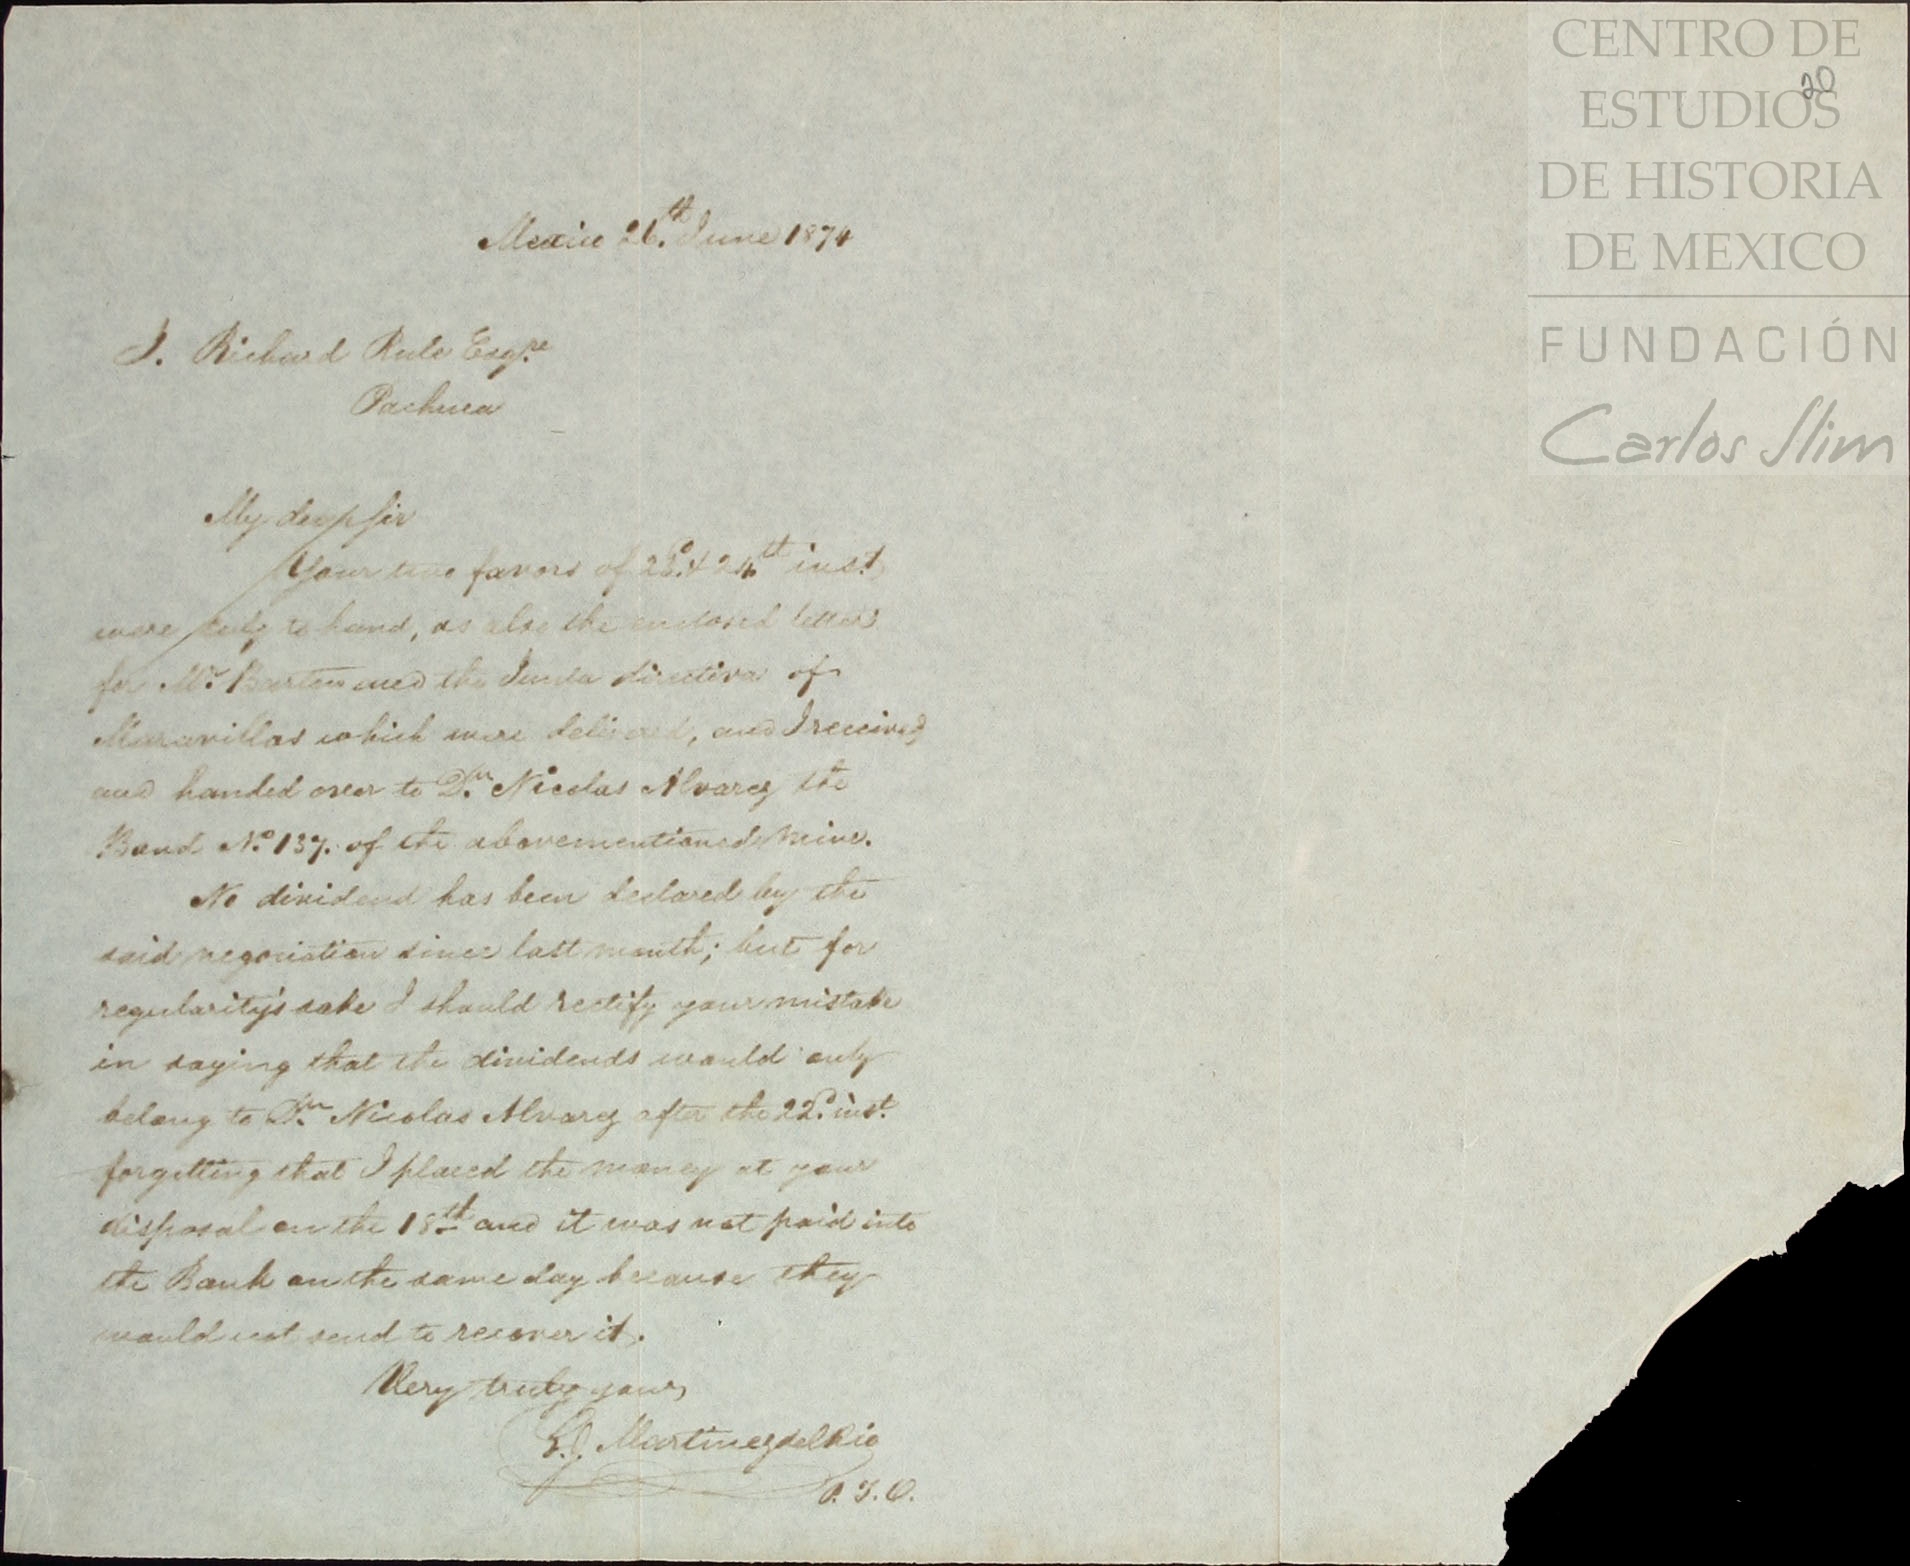 CENTRO DE
ESTUDIOS
DE HISTORIA
DE MEXICO
FUNDACIÓN
Carlos Slim
20
Mexico 26.th June 1874
J. Richard Rule Esq.re
Pachuca
My dear Sir
Your two favors of & 24th inst,
were duly to hand, as also the enclosed letters
for Mr. and the Junta directiva of
Maravillas which were delivered, and I received
and handed over to Dn. Nicolas Alvarez the
Bond No. 137. of the abovementioned mine.
No dividend has been declared by the
said negociation since last month; but for
regularity's sake I should rectify your mistake
in saying that the dividends would only
belong to Dn. Nicolas Alvarez after the 22d. inst.
forgetting that I placed the money at your
disposal on the 18th and it was not paid into
the Bank on the same day because they
would not send to recover it.
Very truly yours,
Martinez del Rio
P.T.O.